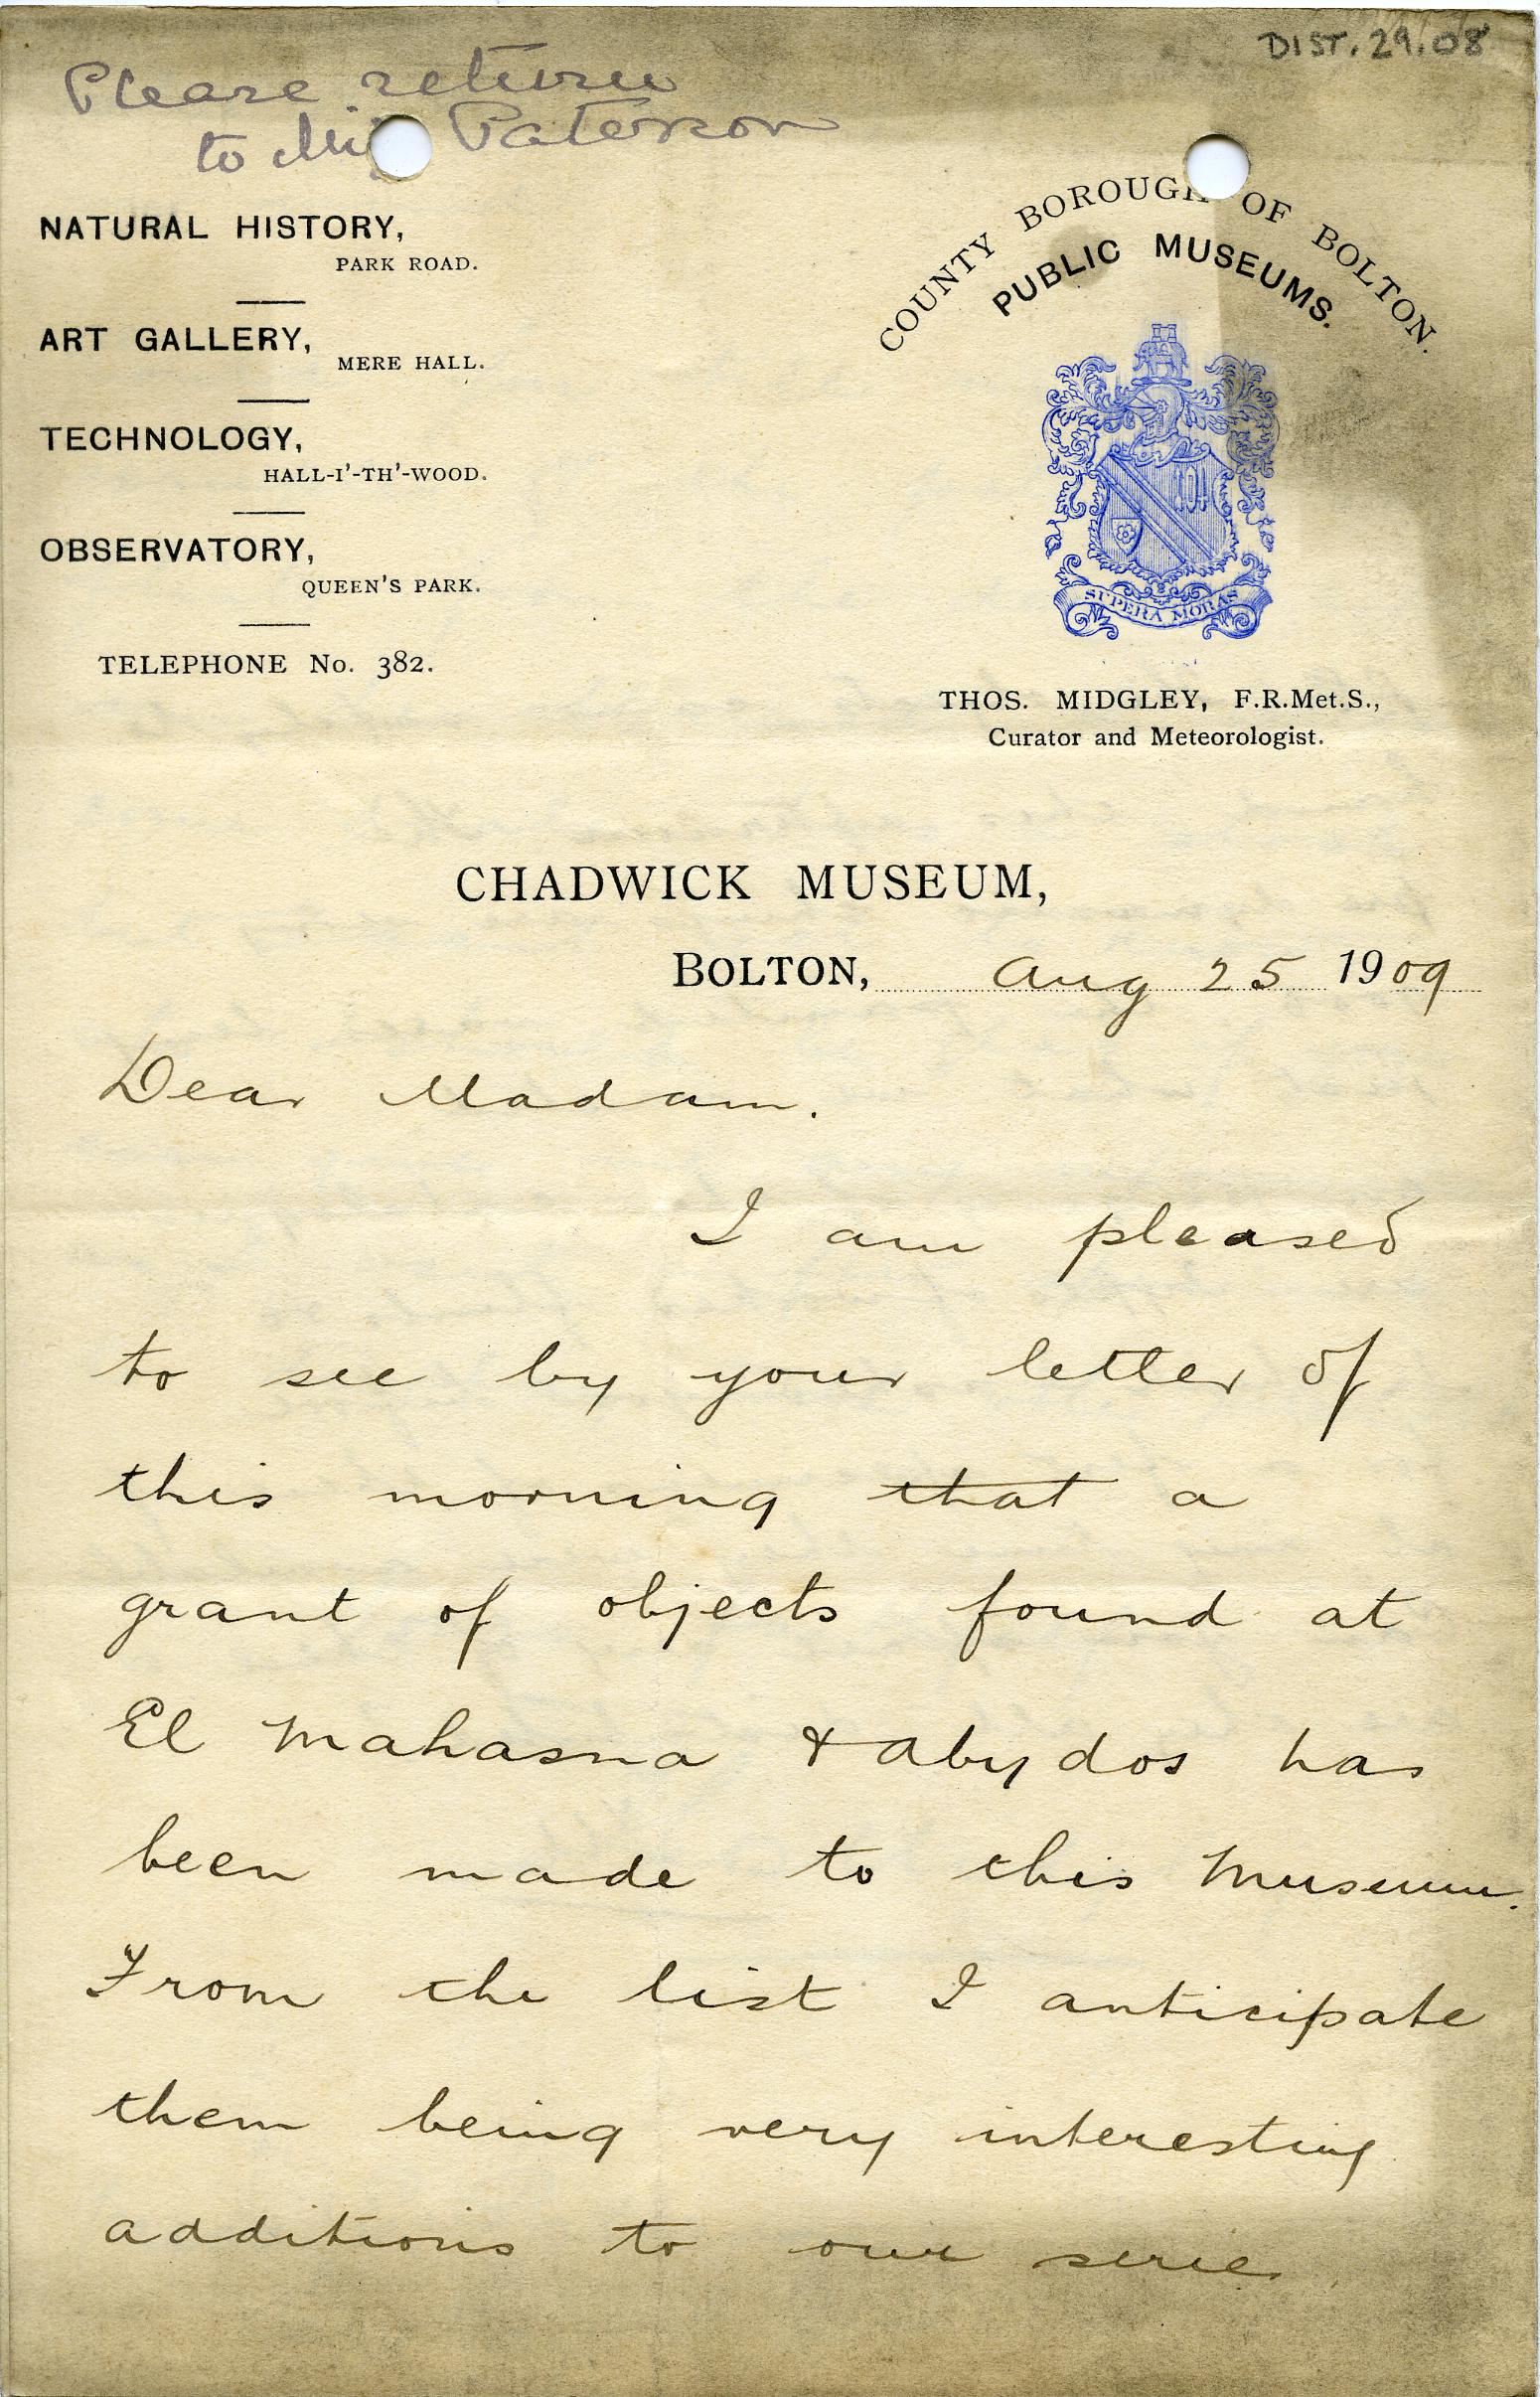 DIST.29.08
Please return
to Miss Paterson
NATURAL HISTORY,
PARK ROAD.
ART GALLERY,
MERE HALL.
TECHNOLOGY,
HALL-I'-TH'-WOOD.
OBSERVATORY,
QUEEN'S PARK.
TELEPHONE No. 382.
COUNTY BOROUGH OF BOLTON.
PUBLIC MUSEUMS.
SUPERA MORAS
THOS. MIDGLEY, F.R.Met.S.,
Curator and Meteorologist.
CHADWICK MUSEUM,
BOLTON, Aug 25 1909
Dear Madam.
I am pleased
to see by your letter of
this morning that a
grant of objects found at
El Mahasna & Abydos has
been made to this Museum.
From the list I anticipate
them being very interesting
additions to our series